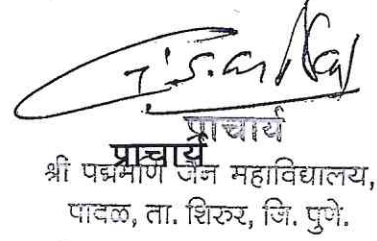 प्राचार्य
प्राचार्य
श्री पद्ममणि जैन महाविद्यालय,
पाबळ, ता. शिरुर, जि. पुणे.